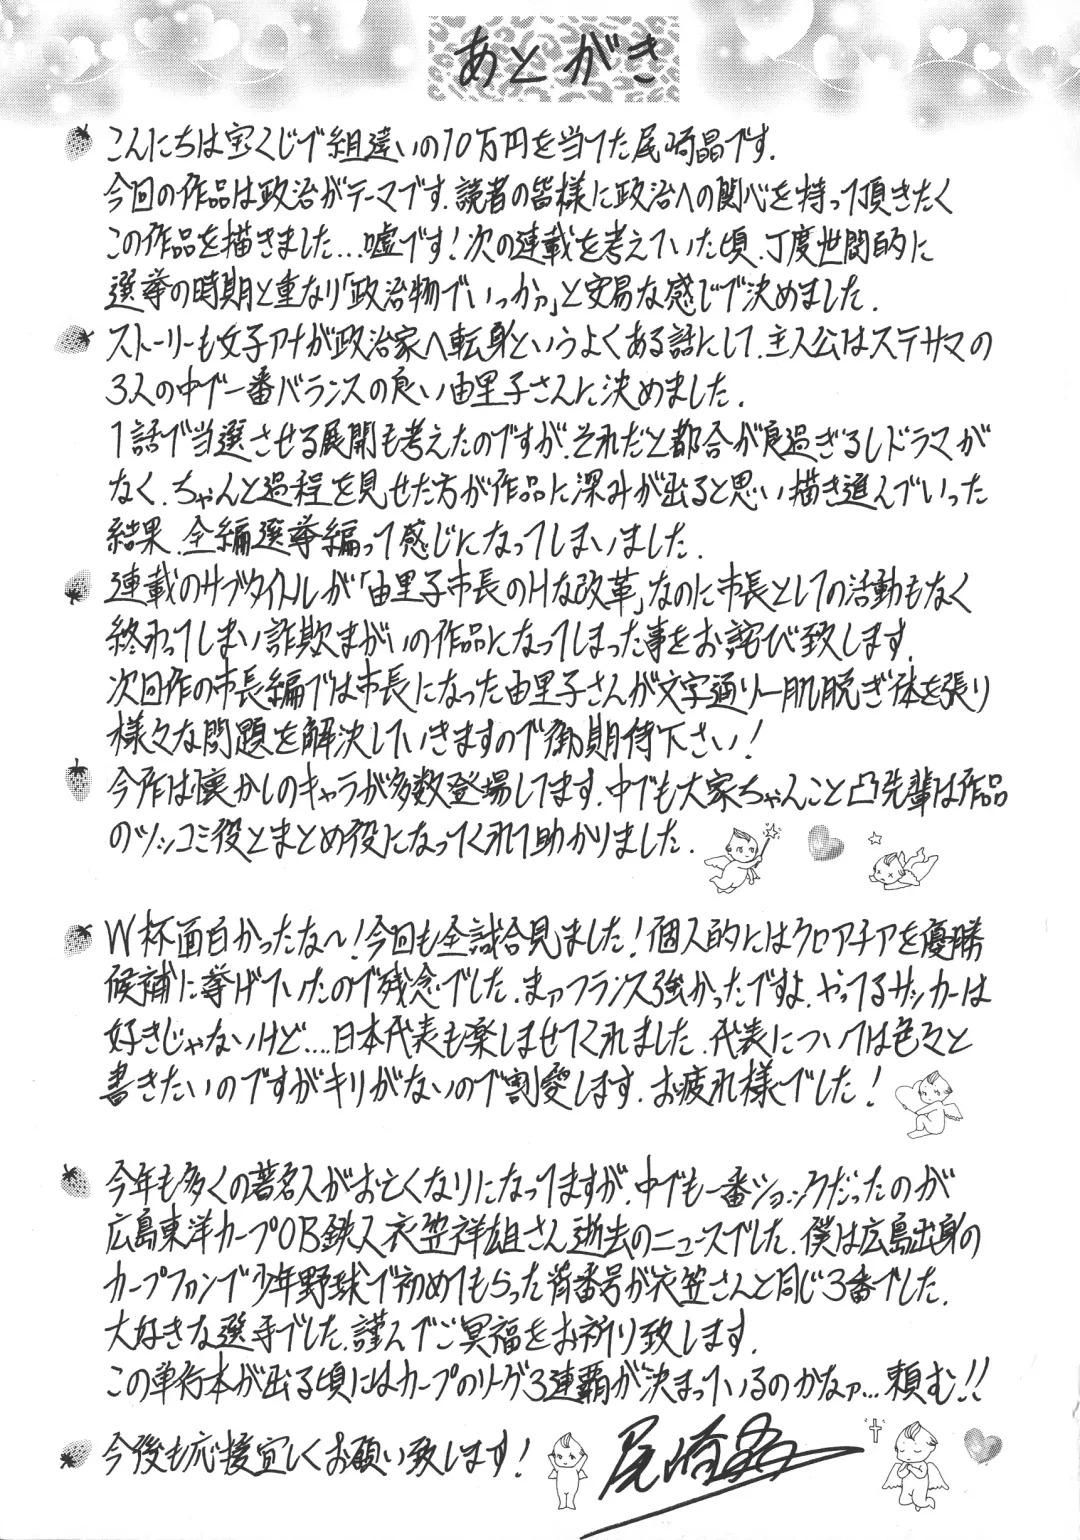 あとがき
こんにちは宝くじで組違いの10万円を当てた尾崎晶です.
今回の作品は政治がテーマです.読者の皆様に政治への関心を持って頂きたく
この作品を描きました...嘘です!次の連載を考えていた頃、丁度世間的に
選挙の時期と重なり「政治物でいっかァ」と安易な感じで決めました.
ストーリーも女子アナが政治家へ転身というよくある話にして、主人公はステサマの
3人の中で一番バランスの良い由里子さんに決めました.
1話で当選させる展開も考えたのですが、それだと都合が良過ぎるしドラマが
なく、ちゃんと過程を見せた方が作品に深みが出ると思い描き進んでいった
結果、全編選挙編って感じになってしまいました.
連載のサブタイトルが「由里子市長のHな改革」なのに市長としての活動もなく
終わってしまい詐欺まがいの作品になってしまった事をお詫び致します.
次回作の市長編では市長になった由里子さんが文字通り一肌脱ぎ体を張り
様々な問題を解決していきますので御期待下さい!
今作は懐かしのキャラが多数登場してます.中でも大家ちゃんこと凸先輩は作品
のツッコミ役とまとめ役になってくれて助かりました.
W杯面白かったな〜!今回も全試合見ました!個人的にはクロアチアを優勝
候補に挙げていたので残念でした.まァフランス強かったですよ、やってるサッカーは
好きじゃないけど....日本代表も楽しませてくれました.代表については色々と
書きたいのですがキリがないので割愛します.お疲れ様でした!
今年も多くの著名人がお亡くなりになってますが、中でも一番ショックだったのが
広島東洋カープOB鉄人衣笠祥雄さん逝去のニュースでした.僕は広島出身の
カープファンで少年野球で初めてもらった背番号が衣笠さんと同じ3番でした.
大好きな選手でした.謹んでご冥福をお祈り致します.
この単行本が出る頃にはカープのリーグ3連覇が決まっているのかなァ...頼む!!
今後も応援宜しくお願い致します!
尾崎晶